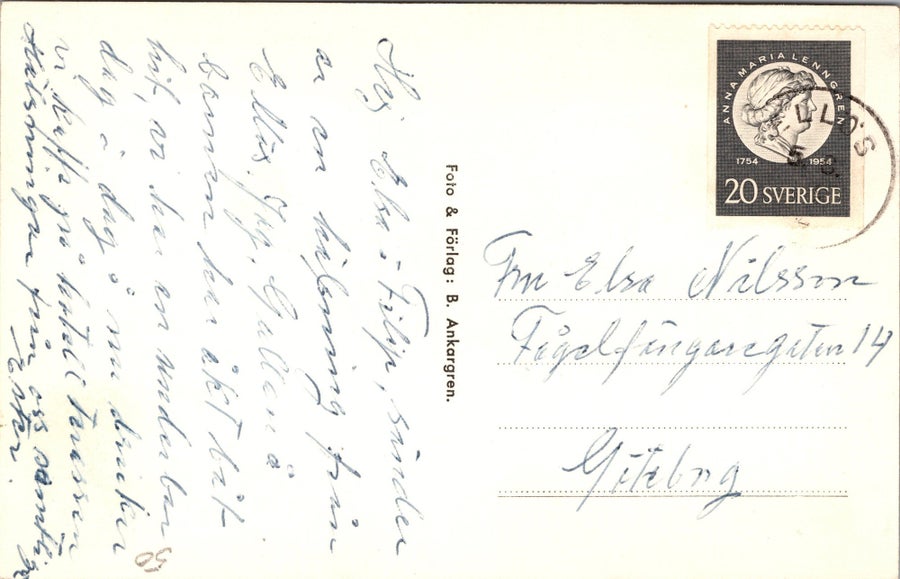 Hej Elsa o Filip, sänder
er en hälsning från
Ellös. Jag, Gullan o
barnen har åkt båt
hit, vi har en underbar
dag i dag o nu dricker
vi kaffe på hotell terassen
Hälsningar från oss samtliga
Ester.
Foto & Förlag: B. Ankargren.
ANNA MARIA LENNGREN
1754 1954
20 SVERIGE
LLÖS
5. 8.
Fru Elsa Nilsson
Fågelfångaregatan 14
Göteborg